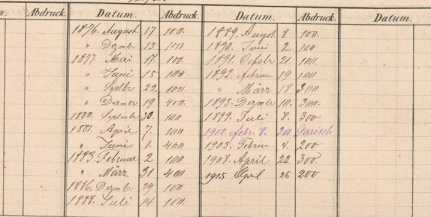 Abdruck. Datum. Abdruck. Datum. Abdruck. Datum.
1876. August 17 100. 1889. Augst 8 100.
" Dezbr 13 100 1890. Juni 2 100
1877. Mai 17 100 1891. Octob. 21 100.
" Juni 15 100 1892. Febru 19 100
" 22 100 " März 18 200
" 19 400 1895. Dezmbr 10 200.
1880. 30 100 1899. Juli 8 300.
1881. April 7 100 1901. Febr. 8. 200
" Juni 1 400 1903. Febru 4 200
1883. Februar 2 100 1907. April 22 300
" März 31 400 1915 April 26 200
1886. Dezbr 29 100
1888. Juli 14 100